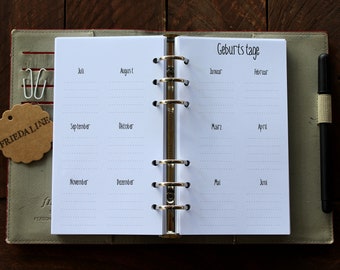 Juli August
September Oktober
November Dezember
Geburtstage
Januar Februar
März April
Mai Juni
FRIEDALINE